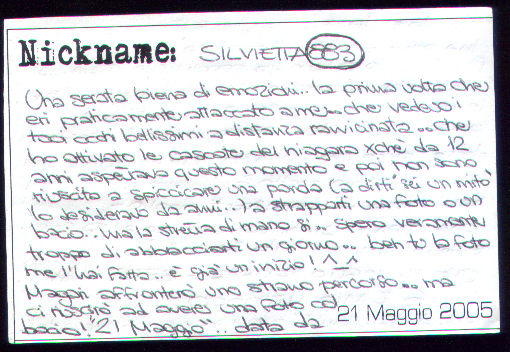 Nickname: SILVIETTA 883
Una serata piena di emozioni.. la prima volta che
eri praticamente attaccato a me... che vedevo i
tuoi occhi bellissimi a distanza ravvicinata.. che
ho attivato le cascate del niagara xché da 12
anni aspettavo questo momento e poi non sono
riuscita a spiccicare una parola (a dirti "sei un mito"
lo desideravo da anni..) a strapparti una foto o un
bacio.. ma la stretta di mano sì.. spero veramente
troppo di abbracciarti un giorno.. beh tu la foto
me l'hai fatta.. è già un inizio! ^_^
Magari affronterò uno strano percorso... ma
ci riuscirò ad avere una foto col
bacio! "21 Maggio".. data da
21 Maggio 2005